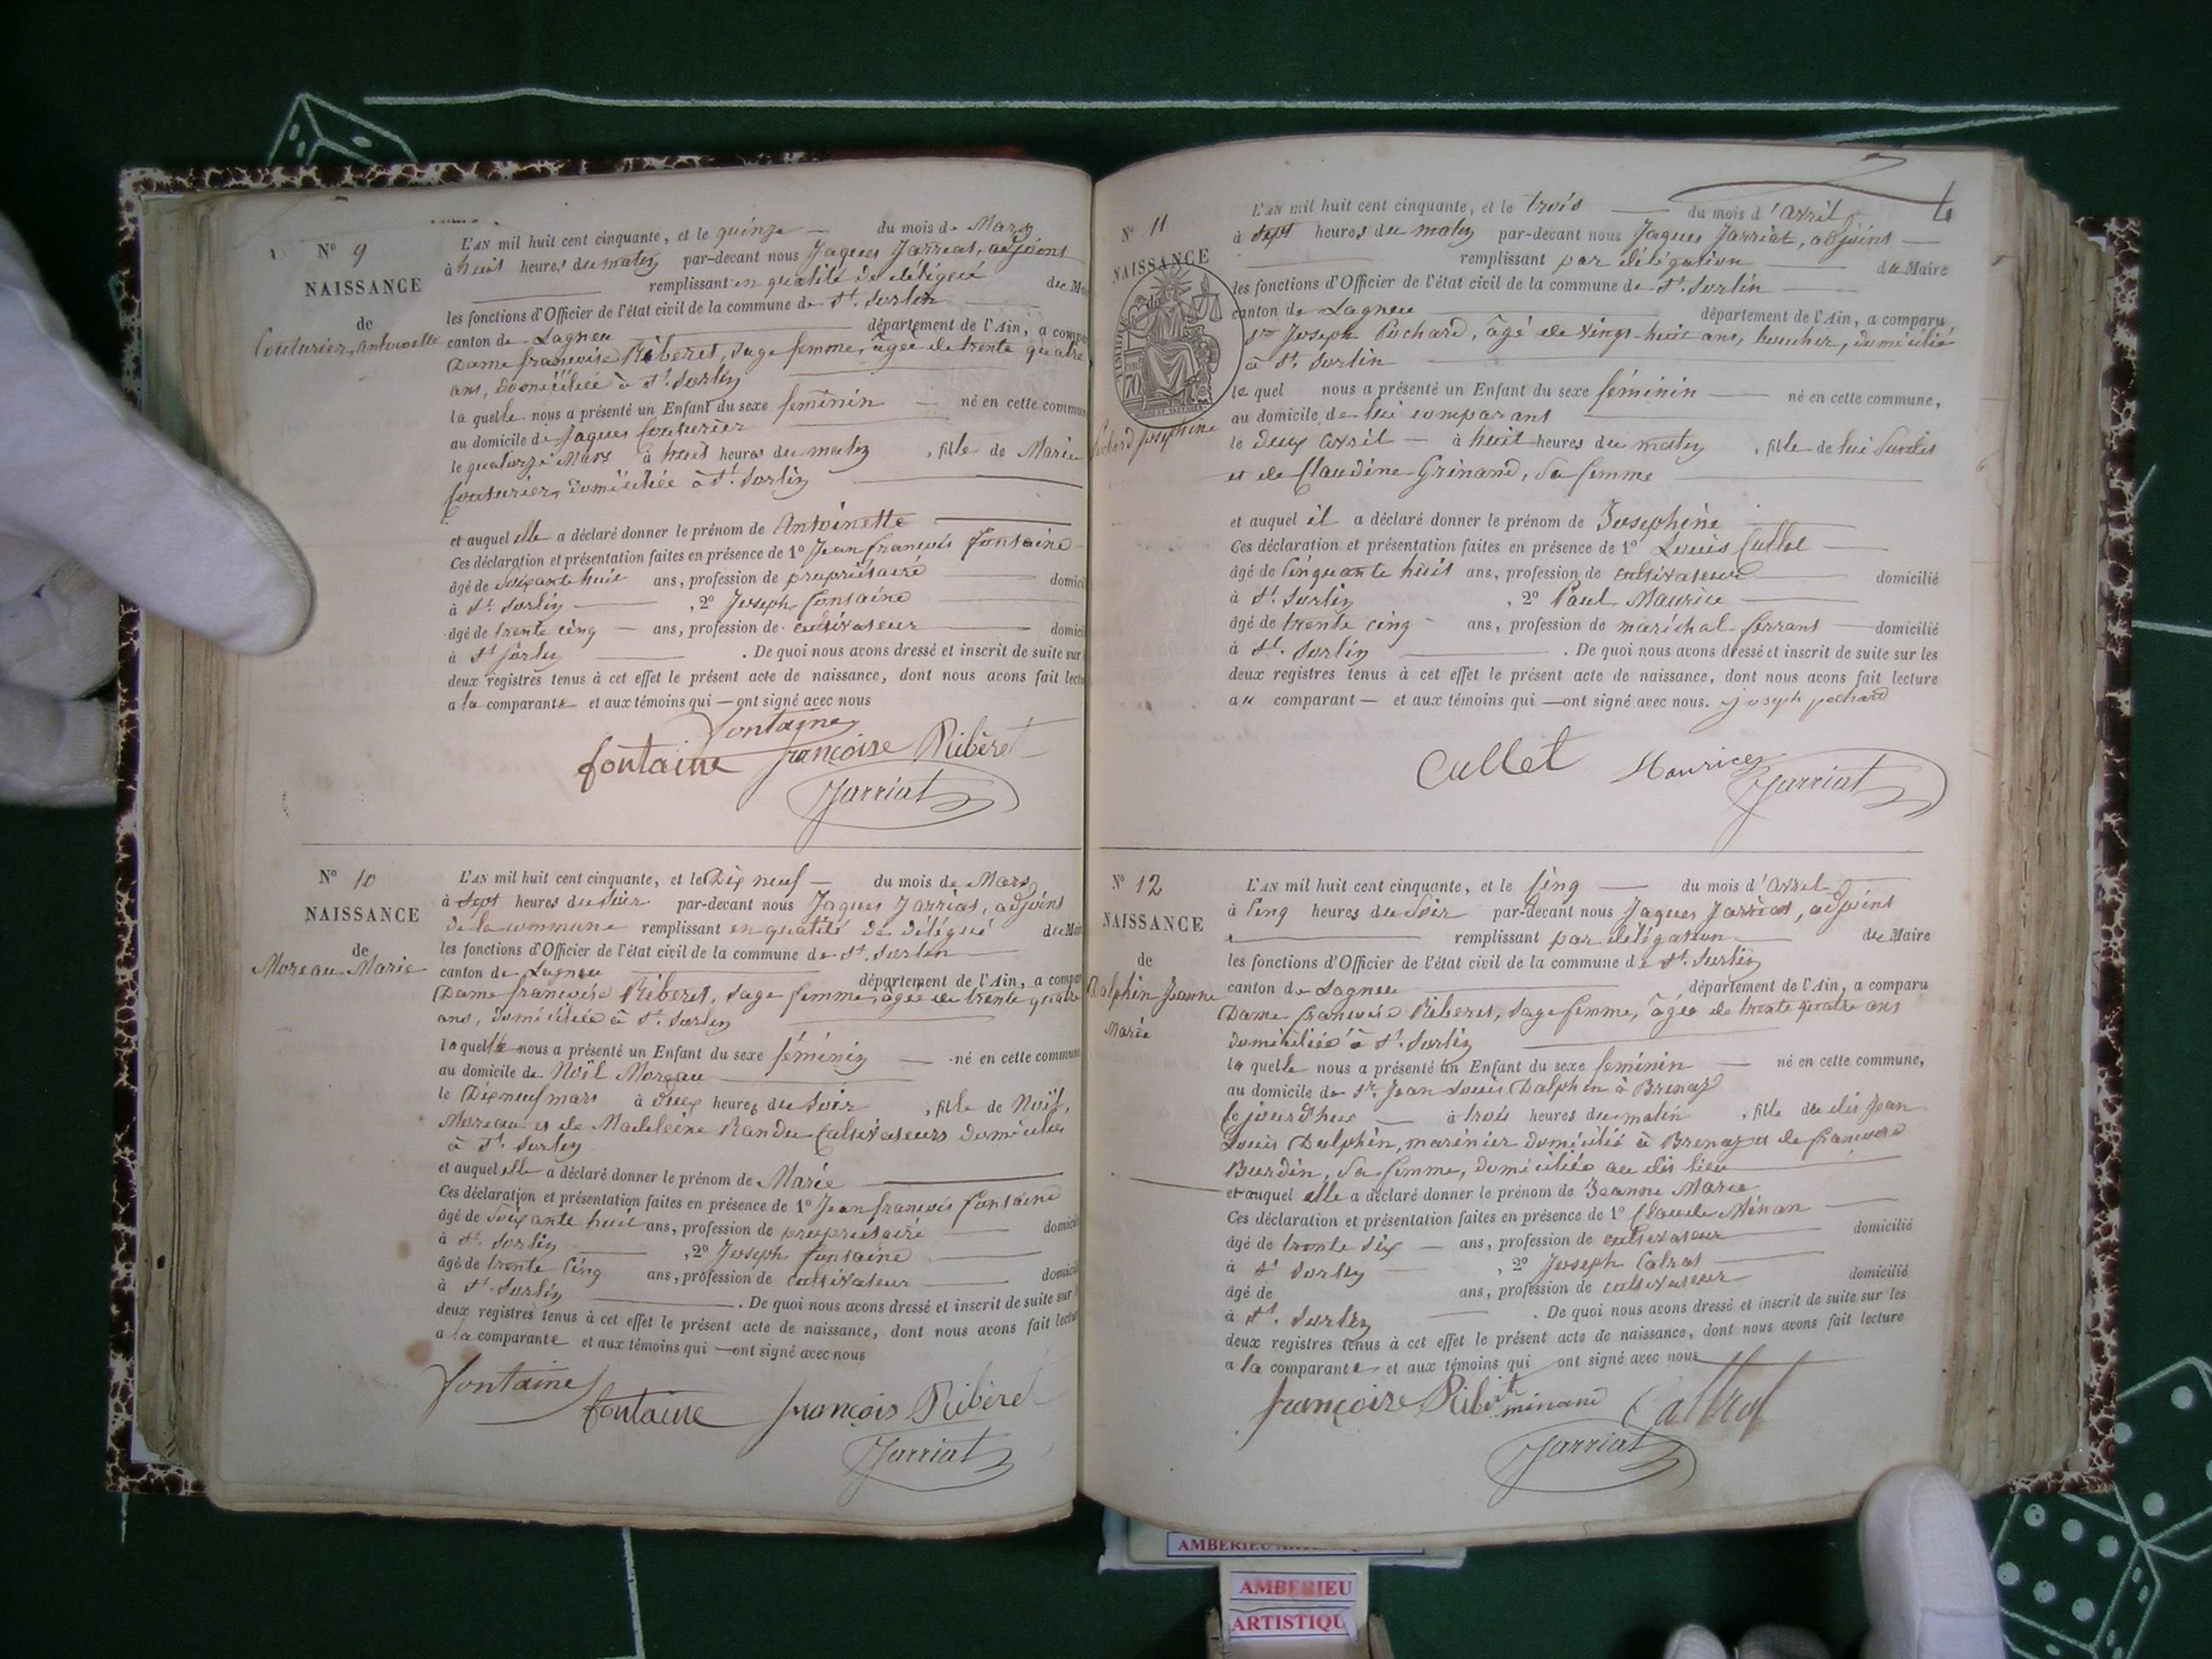 N° 9
NAISSANCE
de
Couturier, Antoinette
L'AN mil huit cent cinquante, et le quinze — du mois de Mars,
à huit heures du matin par-devant nous Jaques Jarriat, adjoint
remplissant en qualité de délégué du
les fonctions d'Officier de l'état civil de la commune de St. Sorlin
canton de Lagneu département de l'Ain, a
Dame françoise Riberet, sage femme, âgée de trente quatre
ans, domiciliée à St. Sorlin
laquelle nous a présenté un Enfant du sexe feminin — né en cette
au domicile de Jaques Couturier
le quatorze Mars à huit heures du matin, fille de Marie
Couturier, domiciliée à St. Sorlin
et auquel elle a déclaré donner le prénom de Antoinette
Ces déclaration et présentation faites en présence de 1° Jean françois Fontaine
âgé de Soixante huit ans, profession de propriétaire
à St. Sorlin — , 2° Joseph Fontaine
âgé de trente cinq — ans, profession de cultivateur
à St Sorlin — . De quoi nous avons dressé et inscrit de suite sur
deux registres tenus à cet effet le présent acte de naissance, dont nous avons fait
a la comparante et aux témoins qui — ont signé avec nous
fontaine
fontaine françoise Ribèret
Jarriat
N° 10
NAISSANCE
de
Moreau Marie
L'AN mil huit cent cinquante, et le Dix neuf — du mois de Mars,
à Sept heures du Soir par-devant nous Jaques Jarriat, adjoint
de la commune remplissant en qualité de délégué du
les fonctions d'Officier de l'état civil de la commune de St. Sorlin
canton de Lagneu département de l'Ain, a
Dame françoise Riberet, Sage femme, âgée de trente quatre
ans, domiciliée à St. Sorlin
laquelle nous a présenté un Enfant du sexe féminin — né en cette
au domicile de Noël Moreau
le Dix neuf mars à deux heures du Soir, fille de Noël,
Moreau et de Madeleine Randu Cultivateurs domiciliés
à St. Sorlin
et auquel elle a déclaré donner le prénom de Marie
Ces déclaration et présentation faites en présence de 1° Jean françois Fontaine
âgé de Soixante huit ans, profession de propriétaire
à St. Sorlin — , 2° Joseph Fontaine
âgé de trente Cinq ans, profession de cultivateur
à St. Sorlin — . De quoi nous avons dressé et inscrit de suite sur
deux registres tenus à cet effet le présent acte de naissance, dont nous avons fait
a la comparante et aux témoins qui — ont signé avec nous
fontaine
fontaine françois Ribèret
Jarriat
4
N° 11
NAISSANCE
de
70
Pochard Josephine
L'AN mil huit cent cinquante, et le trois — du mois d'Avril,
à Sept heures du matin par-devant nous Jaques Jarriat, adjoint —
remplissant par délégation — du Maire
les fonctions d'Officier de l'état civil de la commune de St. Sorlin —
canton de Lagneu — département de l'Ain, a comparu
Sr Joseph Pochard, âgé de vingt-huit ans, boucher, domicilié
à St. Sorlin
lequel nous a présenté un Enfant du sexe féminin — né en cette commune,
au domicile de lui comparant
le deux avril — à huit heures du matin, fille de lui Susdit
et de Claudine Grinand, sa femme
et auquel il a déclaré donner le prénom de Josephine
Ces déclaration et présentation faites en présence de 1° Louis Cullet —
âgé de Cinquante huit ans, profession de cultivateur — domicilié
à St. Sorlin , 2° Paul Maurice —
âgé de trente cinq - ans, profession de maréchal ferrant — domicilié
à St. Sorlin — . De quoi nous avons dressé et inscrit de suite sur les
deux registres tenus à cet effet le présent acte de naissance, dont nous avons fait lecture
au comparant — et aux témoins qui — ont signé avec nous. joseph pochard
Cullet Maurice
Jarriat
N° 12
NAISSANCE
de
Dalphin Jeanne
Marie
L'AN mil huit cent cinquante, et le Cinq — du mois d'Avril
à Cinq heures du Soir par-devant nous Jaques Jarriat, adjoint
remplissant par délégation — du Maire
les fonctions d'Officier de l'état civil de la commune de St. Sorlin
canton de Lagneu — département de l'Ain, a comparu
Dame françoise Riberet, Sage femme, âgée de trente quatre ans
domiciliée à St. Sorlin
laquelle nous a présenté un Enfant du sexe feminin — né en cette commune,
au domicile de Sr. Jean Louis Dalphin à Brenaz
Cejourd'hui — à trois heures du matin, fille du dit Jean
Louis Dalphin, marinier domicilié à Brenaz et de françoise
Burdin, sa femme, domiciliée au dit lieu
et auquel elle a déclaré donner le prénom de Jeanne Marie
Ces déclaration et présentation faites en présence de 1° Claude Minan —
âgé de trente Six — ans, profession de cultivateur — domicilié
à St Sorlin — , 2° Joseph Calrat
âgé de ans, profession de cultivateur domicilié
à St. Sorlin — . De quoi nous avons dressé et inscrit de suite sur les
deux registres tenus à cet effet le présent acte de naissance, dont nous avons fait lecture
a la comparante et aux témoins qui ont signé avec nous
françoise Ribèret minand
Jarriat
AMBERIEU
AMBERIEU
ARTISTIQU